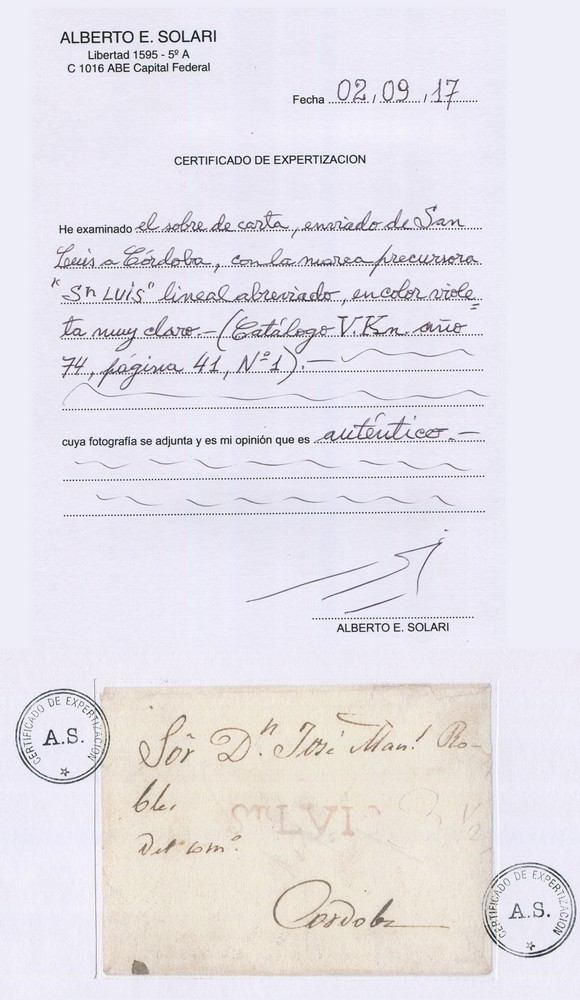 ALBERTO E. SOLARI
Libertad 1595 - 5º A
C 1016 ABE Capital Federal
Fecha 02, 09, 17
CERTIFICADO DE EXPERTIZACION
He examinado el sobre de carta, enviado de San
Luis a Córdoba, con la marca precursora
"Sn LUIS" lineal abreviado, en color viole=
ta muy claro.- (Catálogo V.Kn. año
74, página 41, Nº1).-
cuya fotografía se adjunta y es mi opinión que es auténtico.-
ALBERTO E. SOLARI
CERTIFICADO DE EXPERTIZACION
A.S.
Sór Dn. José Manl Ro-
bles
Del comº.
Sn LVIS
Cordoba
CERTIFICADO DE EXPERTIZACION
A.S.